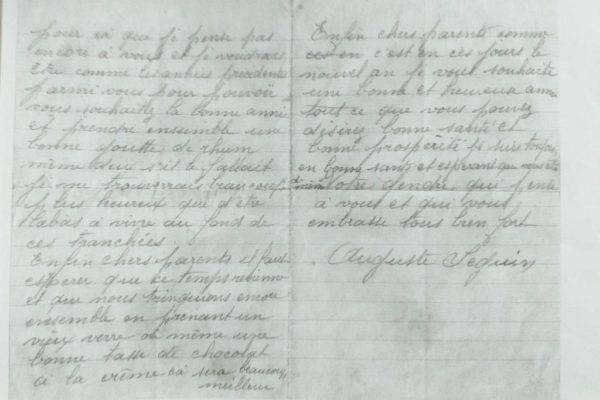 pour çà que je pense pas
encore à vous et je voudrais
être comme les années précédentes
parmi vous pour pouvoir
vous souhaitez la bonne année
et prendre ensemble une
bonne goutte de rhum
même deux s'il le fallait
je me trouverais beaucoup
plus heureux que d'être
labas à vivre au fond de
ces tranchées
Enfin chers parents il faut
esperer que ce temps
et que nous tringuerons encore
ensemble en prenant un
vieux verre ou même une
bonne tasse de chocolat
à la crême cà sera beaucoup
meilleur
Enfin chers parents comme
en c'est en ces jours le
nouvel an je vous souhaite
une bonne et heureuse année
tout ce que vous pouvez
désirez bonne santé et
bonne prospérité je suis toujours
en bonne santé et esperant que vous
de même Votre gendre qui pense
à vous et qui vous
embrasse tous bien fort
Auguste Seguin